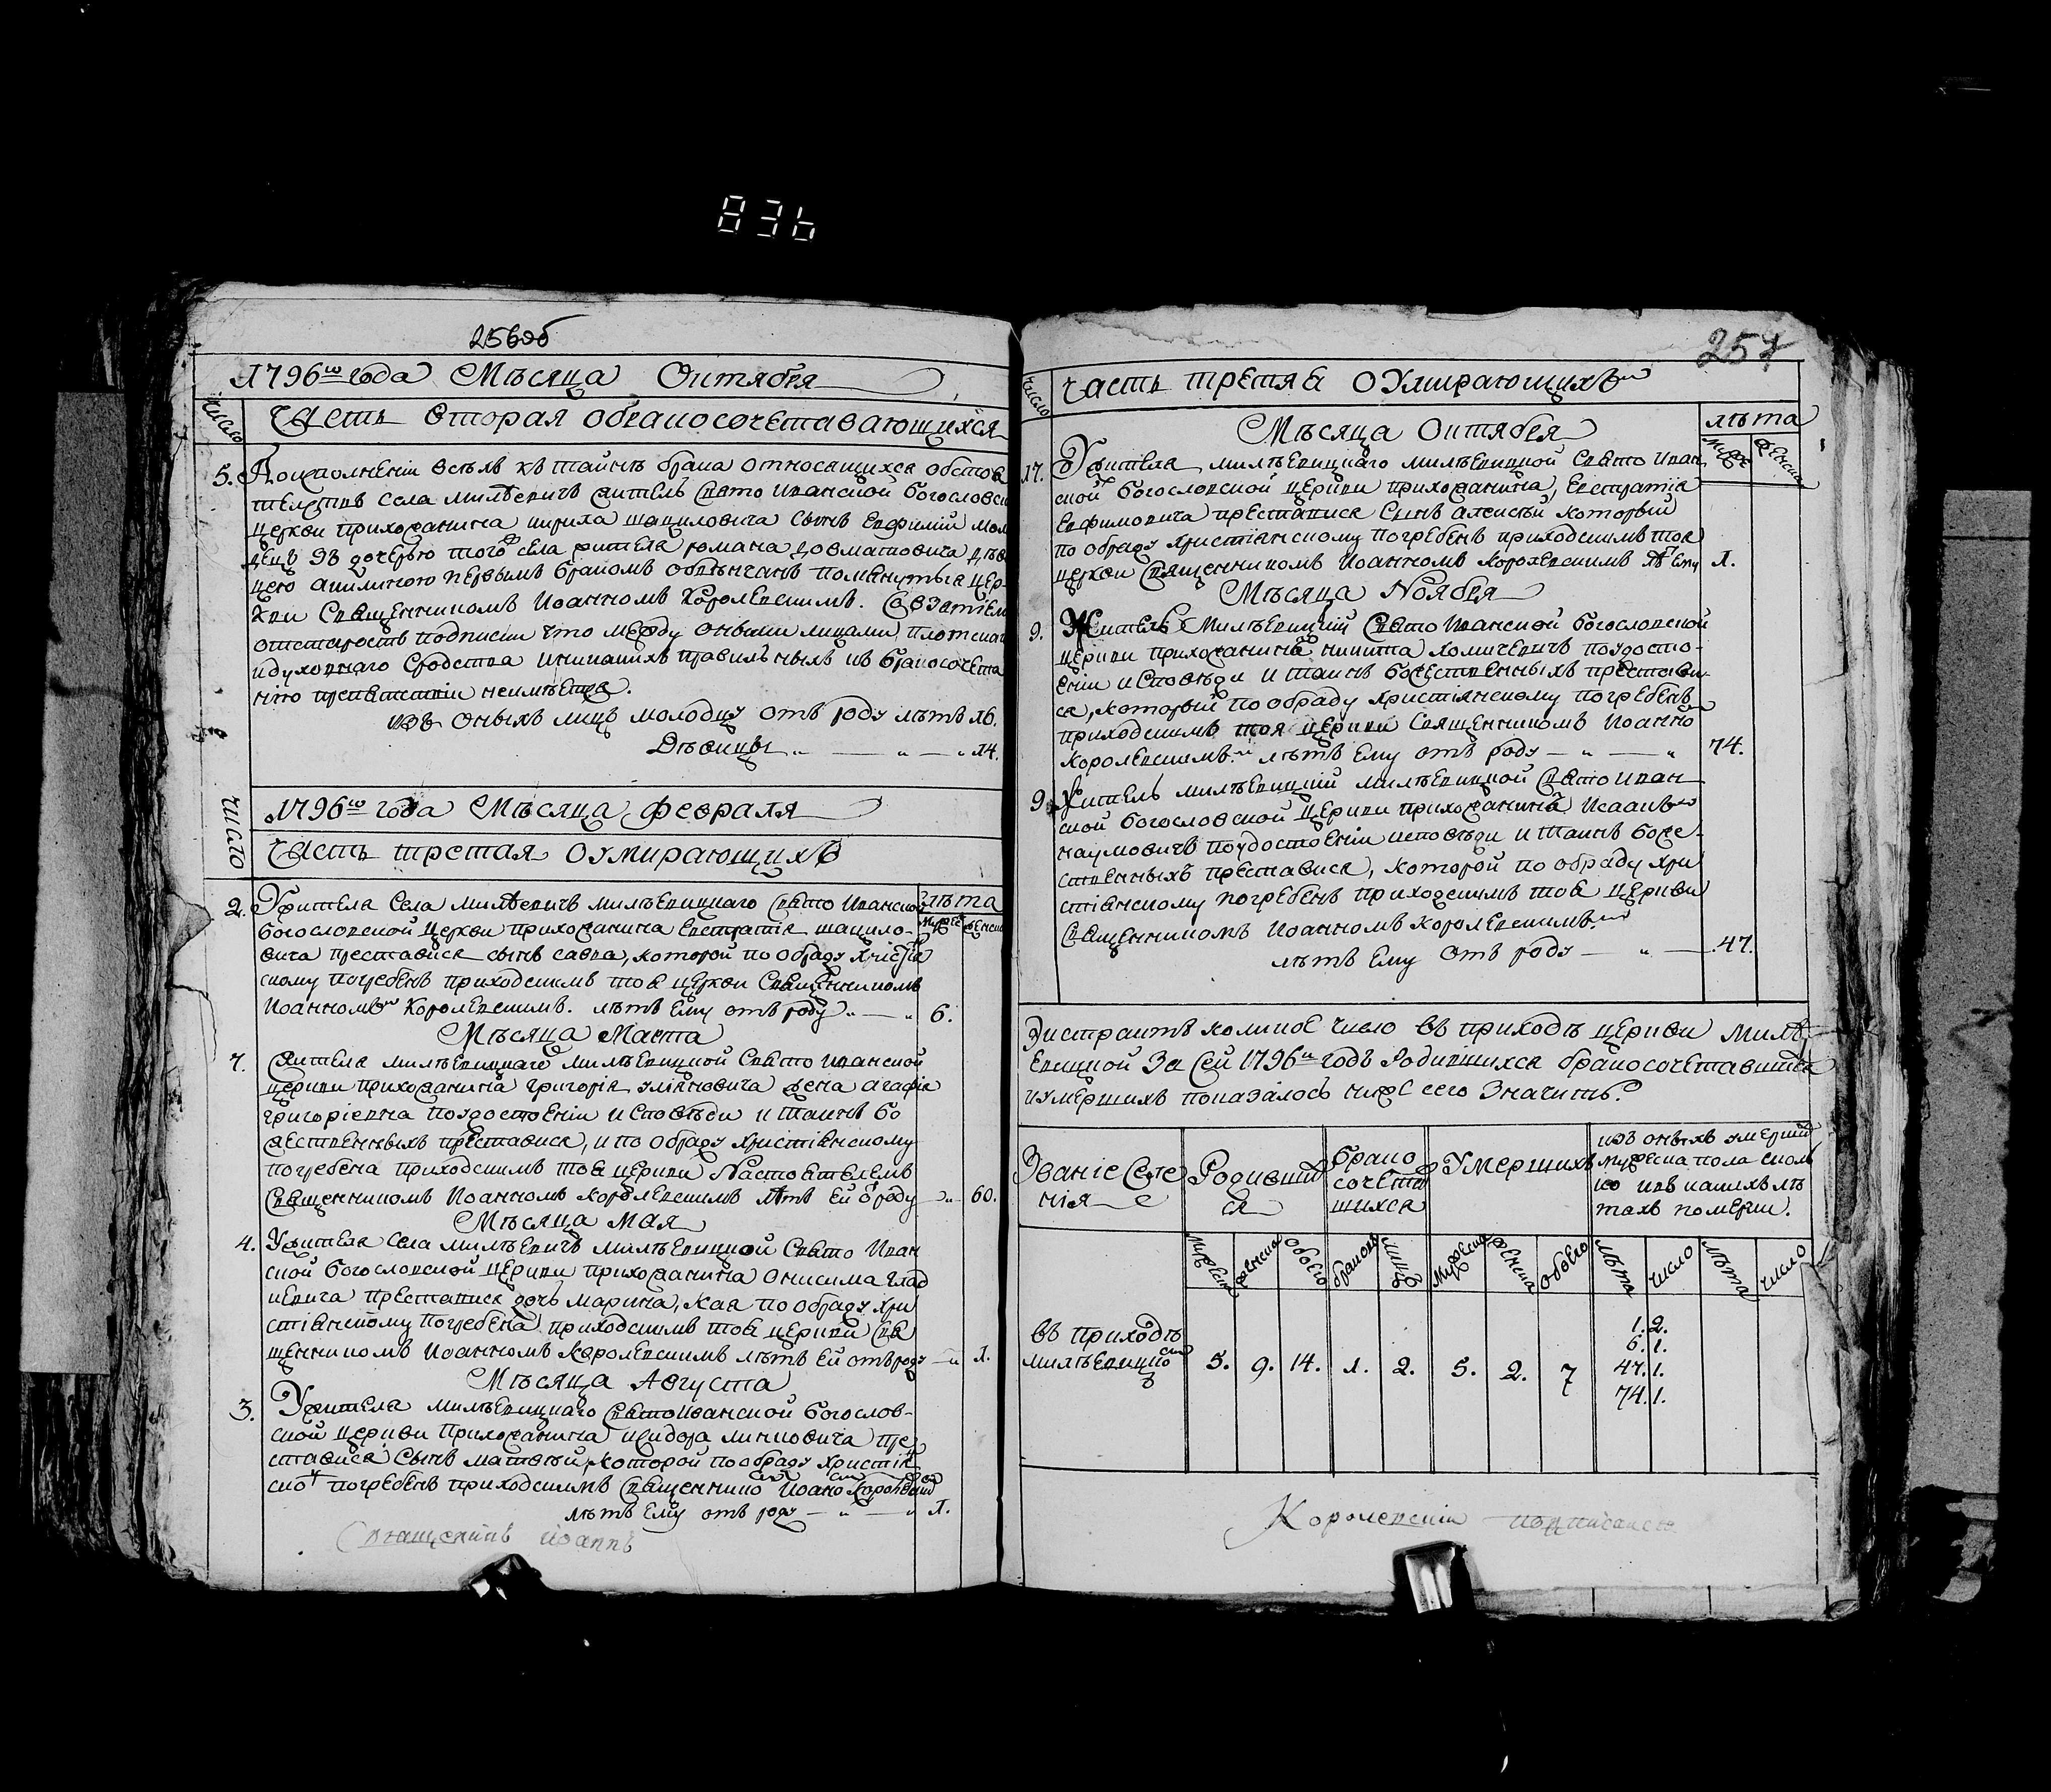 836
256об
1796го года Мѣсяца Октября
число
Часть вторая о бракосочетавающихся
5. По исполненіи всѣхъ къ тайнѣ брака относящихся обстоя
телствъ села Милѣевичъ жителѣ Свято Иванской Богословской
церкви прихожанина кирила шациловича сынъ Евфимій моло
децъ зъ дочерью того ж села жителя романа довматовича дѣви
цею акилиною первымъ бракомъ обвѣнчанъ помянутыя цер
кви Священникомъ Иоанномъ Королевскимъ.
отстарость подписки что между оными лицами плотскаго
и духовнаго Сродства и никакихъ правилныхъ къ бракосочета
нію препятствіи неимѣется.
изъ оныхъ лицъ молодцу отъ роду лѣтъ 16.
Дѣвицы „ — „ — „ 14.
число
1796го года Мѣсяца февраля
Часть третая о умирающихъ
лѣта
мужес женска
2. Ужителя Села милѣевичъ милѣевицкаго Свято Иванской
Богословской Церкви прихожанина Евстратія шацило-
вича преставися сынъ савва, которой по обряду Христіан
скому погребенъ приходскимъ тоя церкви Священникомъ
Иоанномъ Королевскимъ. лѣтъ Ему отъ роду „ — „ 6.
Мѣсяца Марта
7. Жителя милѣевицкаго милѣевицкой Свято Иванской
церкви прихожанина григорія уліяновича жена агафія
григоріевна поудостоеніи исповѣди и таинъ Бо
жественныхъ преставися, и по обряду христіянскому
погребена приходскимъ тоя церкви Настоятелемъ
Священникомъ Иоанномъ королевскимъ лѣтъ Ей о роду — „ 60.
Мѣсяца Мая
4. Ужителя Села милѣевичъ милѣевицкой Свято Иван
ской Богословской церкви прихожанина онисима глад
кевича преставися дочь марина, кая по обряду хри
стіянскому погребена приходскимъ тоя церкви Свя
щенникомъ Иоанномъ Королевскимъ лѣтъ Ей отъ роду — „ 1.
Мѣсяца Августа
3. Ужителя милѣевицкаго Свято Иванской богослов-
ской церкви прихожанина исидора линковича пре
ставися Сынъ матвей, которой по обряду христіян
ско погребенъ приходскимъ Священнико Иоано Королевски
лѣтъ Ему отъ роду — „ — „ 1.
Священникъ Иоаннъ
257
число
Часть третяя о Умирающихъ
лѣта
муж женска
Мѣсяца Октября
17. Ужителя милѣевицкаго милѣевицкой Свято Иван
ской Богословской церкви прихожанина, Евстратія
Евфимовича преставися Сынъ алексѣй который
по обряду христіянскому погребенъ приходскимъ тоя
церкви Священникомъ Иоанномъ королевскимъ лѣт Ему 1.
Мѣсяца Ноября
9. Житель Милѣевицкій Свято Иванской Богословской
церкви прихожанинъ никита хомичевичъ поудосто-
еніи исповѣди и таинъ божественныхъ преставы-
ся, который по обряду христіянскому погребенъ
приходскимъ тоя церкви Священникомъ Иоанно
королевскимъ. лѣтъ Ему отъ роду — „ — „ 74.
9. Житель милѣевицкій милѣевицкой Свято Иван
ской Богословской Церкви прихожанинъ Исаакъ
наумовичъ поудостоеніи исповѣди и таинъ Боже-
ственныхъ преставися, которой по обряду хри
стіянскому погребенъ приходскимъ тоя Церкви
Священникомъ Иоанномъ королевскимъ.
лѣтъ Ему отъ роду — „ — 47.
Экстрактъ коликое число въ приходѣ церкви Милѣ
евицкой За Сей 1796й годъ Родившихся бракосочетавшихся
и умершихъ показалось ниже сего Значитъ.
Званіе Селе
нія
Родивши
ся
Брако
сочета
шихся
Умершихъ
изъ оныхъ умерши
мужеска пола сколь
ко и въ какихъ лѣ
тахъ померли.
мужеска женска обоего браковъ лицъ мужеска женска обоего лѣта число лѣта число
въ приходѣ
милѣевицко 5. 9. 14. 1. 2. 5. 2. 7
1. 2.
6. 1.
47. 1.
74. 1.
Королевскій подписался